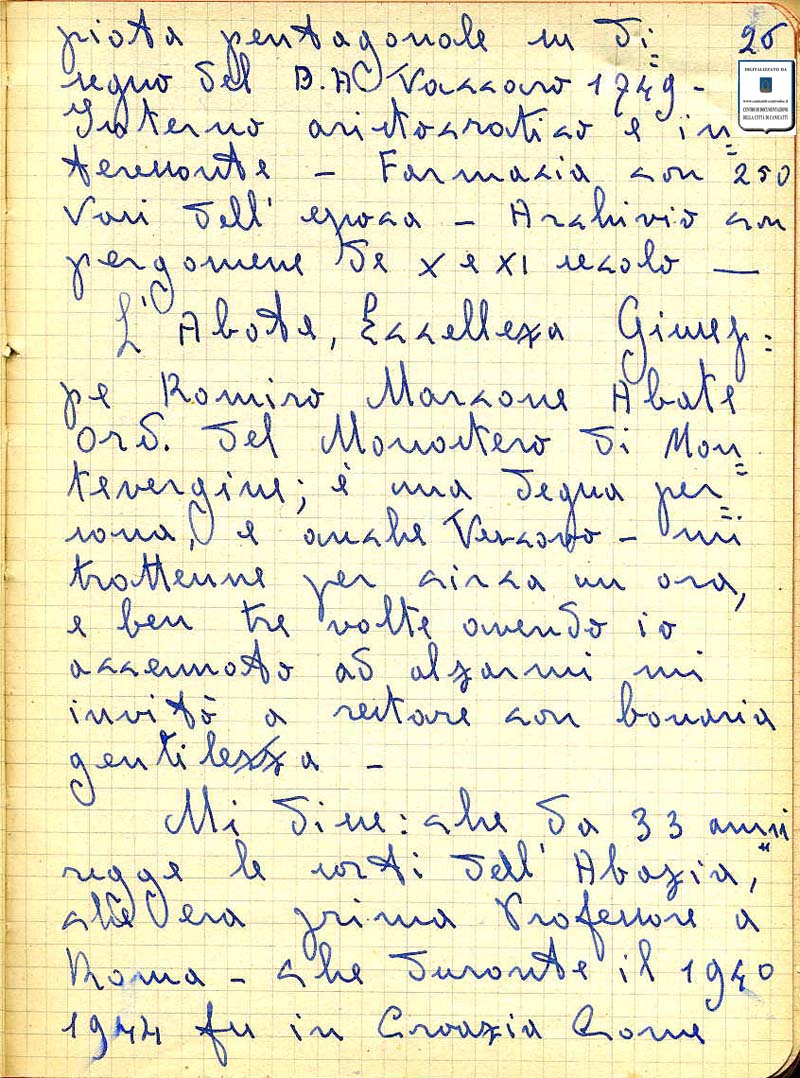 26
DIGITALIZZATO DA
www.canicatti-centrodoc.it
CENTRO DI DOCUMENTAZIONE
DELLA CITTÀ DI CANICATTÌ
piota pentagonale su di=
segno del D.A Vaccaro 1749 -
Interno aristocratico e in=
teressante - Farmacia con 250
Vasi dell' epoca - Archivio con
pergomene de X e XI secolo —
L' Abate, Eccellexa Giusep=
pe Romiro Marcone Abate
Ord. del Monastero di Mon=
tevergine; è una degna per=
sona, e anche Vescovo - mi
trattenne per circa un ora,
e ben tre volte avendo io
accennato ad alzarmi mi
invitò a restare con bonaria
gentilezza -
Mi disse: che da 33 anni
regge le sorti dell' Abazia,
che era prima Professore a
Roma - che durante il 1940
1944 fu in Croazia Come